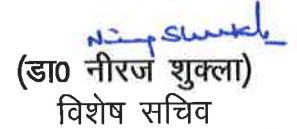 (डा0 नीरज शुक्ला)
विशेष सचिव